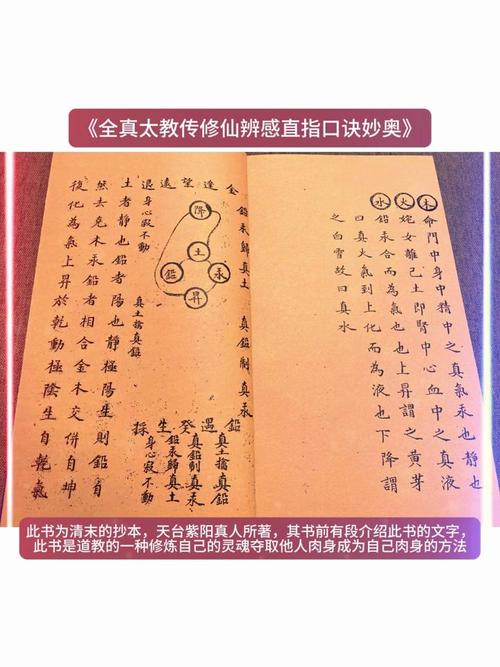 《全真太教传修仙辨感直指口诀妙奥》
木命門中身中精中之真氣汞也靜也
火姹女離己土即腎中心血中之真液
水鉛汞合而為氣也也上昇謂之黃芽
曰真火氣到上化而為液也下降謂
之白雪故曰真水
金逢望遠退
鉛汞歸真土 真鉛制真汞
降
土
鉛
汞
昇
真土擒真鉛
身心寂不動
鉛遇癸生採
真土擒真鉛
真鉛制真汞
鉛汞歸真土
身心寂不動
土者靜也鉛者陽也靜極陽生則鉛自
然去尅木汞鉛者相合金木交併自坤
後化為氣上昇於乾動極陰生自乾氣
此书为清末的抄本，天台紫阳真人所著，其书前有段介绍此书的文字，
此书是道教的一种修炼自己的灵魂夺取他人肉身成为自己肉身的方法